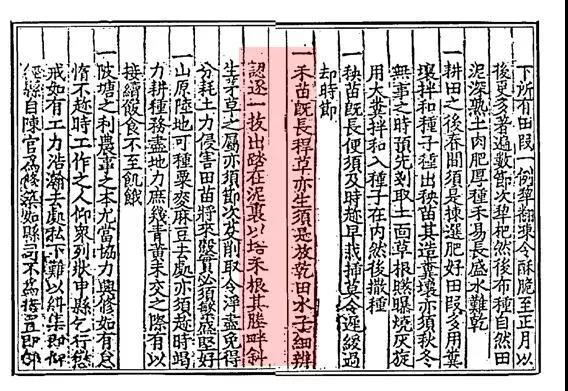 下所有田段一例犁翻凍令酥脆至正月以
後更多著遍數節次犁杷然後布種自然田
泥深熟土肉肥厚種禾易長盛水難乾
一耕田之後春間須是揀選肥好田段多用糞
壤拌和種子種出秧苗其造糞壤亦須秋冬
無事之時預先剗取土面草根曬曝燒灰旋
用大糞拌和入種子在内然後撒種
一秧苗既長便須及時趂早栽插莫令遲緩過
却時節
一禾苗既長稈草亦生須是放乾田水子細辨
認逐一拔出踏在泥裏以培禾根其塍畔斜
生茅草之屬亦須節次芟削取令淨盡免得
分耗土力侵害田苗將來穀實必須繁盛堅好
一山原陸地可種粟麥麻豆去處亦須趂時竭
力耕種務盡地力庶幾青黄未交之際有以
接續飲食不至飢餓
一陂塘之利農事之本尤當協力興修如有怠
惰不趂時工作之人仰衆列狀申縣乞行懲
戒如有工力浩瀚去處私下難以糾集即仰
經縣自陳官爲修築如縣司不爲措置即仰